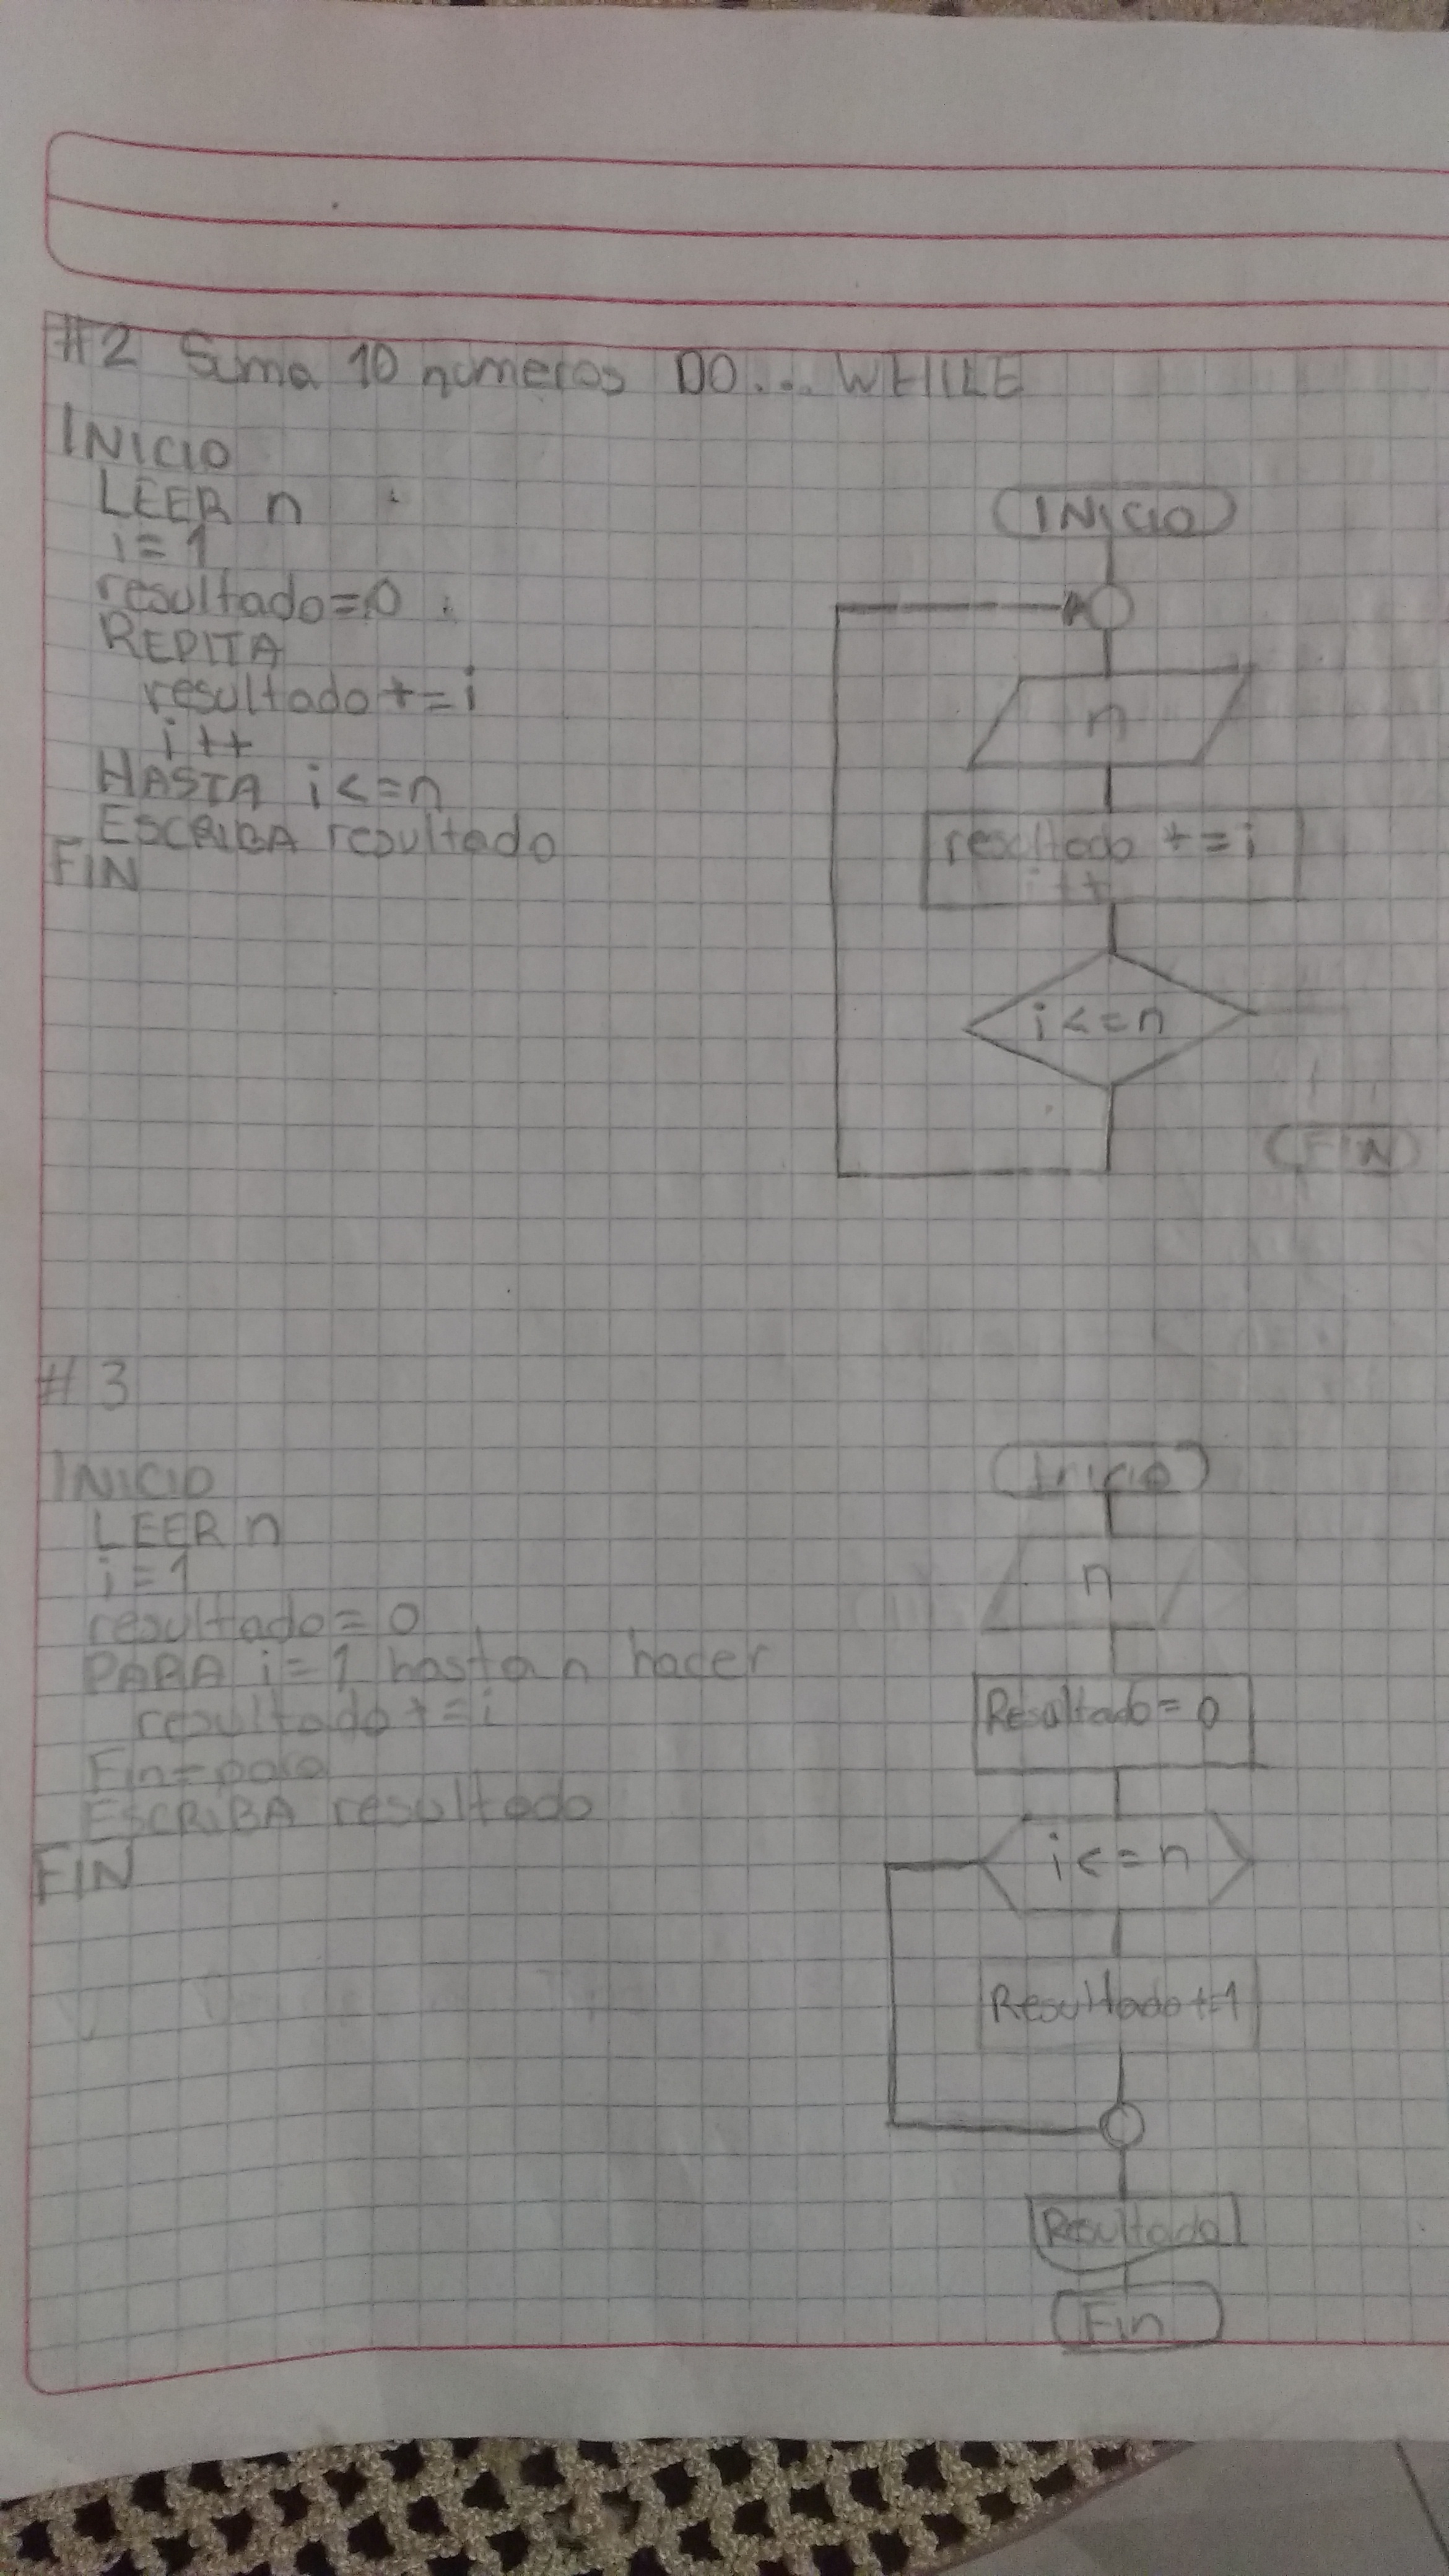 #2 Suma 10 numeros DO... WHILE
INICIO
LEER n
i=1
resultado=0
REPITA
resultado+=i
i++
HASTA i<=n
ESCRIBA resultado
FIN
INICIO
n
resultado +=i
i++
i<=n
FIN
#3
INICIO
LEER n
i=1
resultado=0
PARA i=1 hasta n hacer
resultado+=i
Fin-para
ESCRIBA resultado
FIN
Inicio
n
Resultado=0
i<=n
Resultado+=1
Resultado
Fin